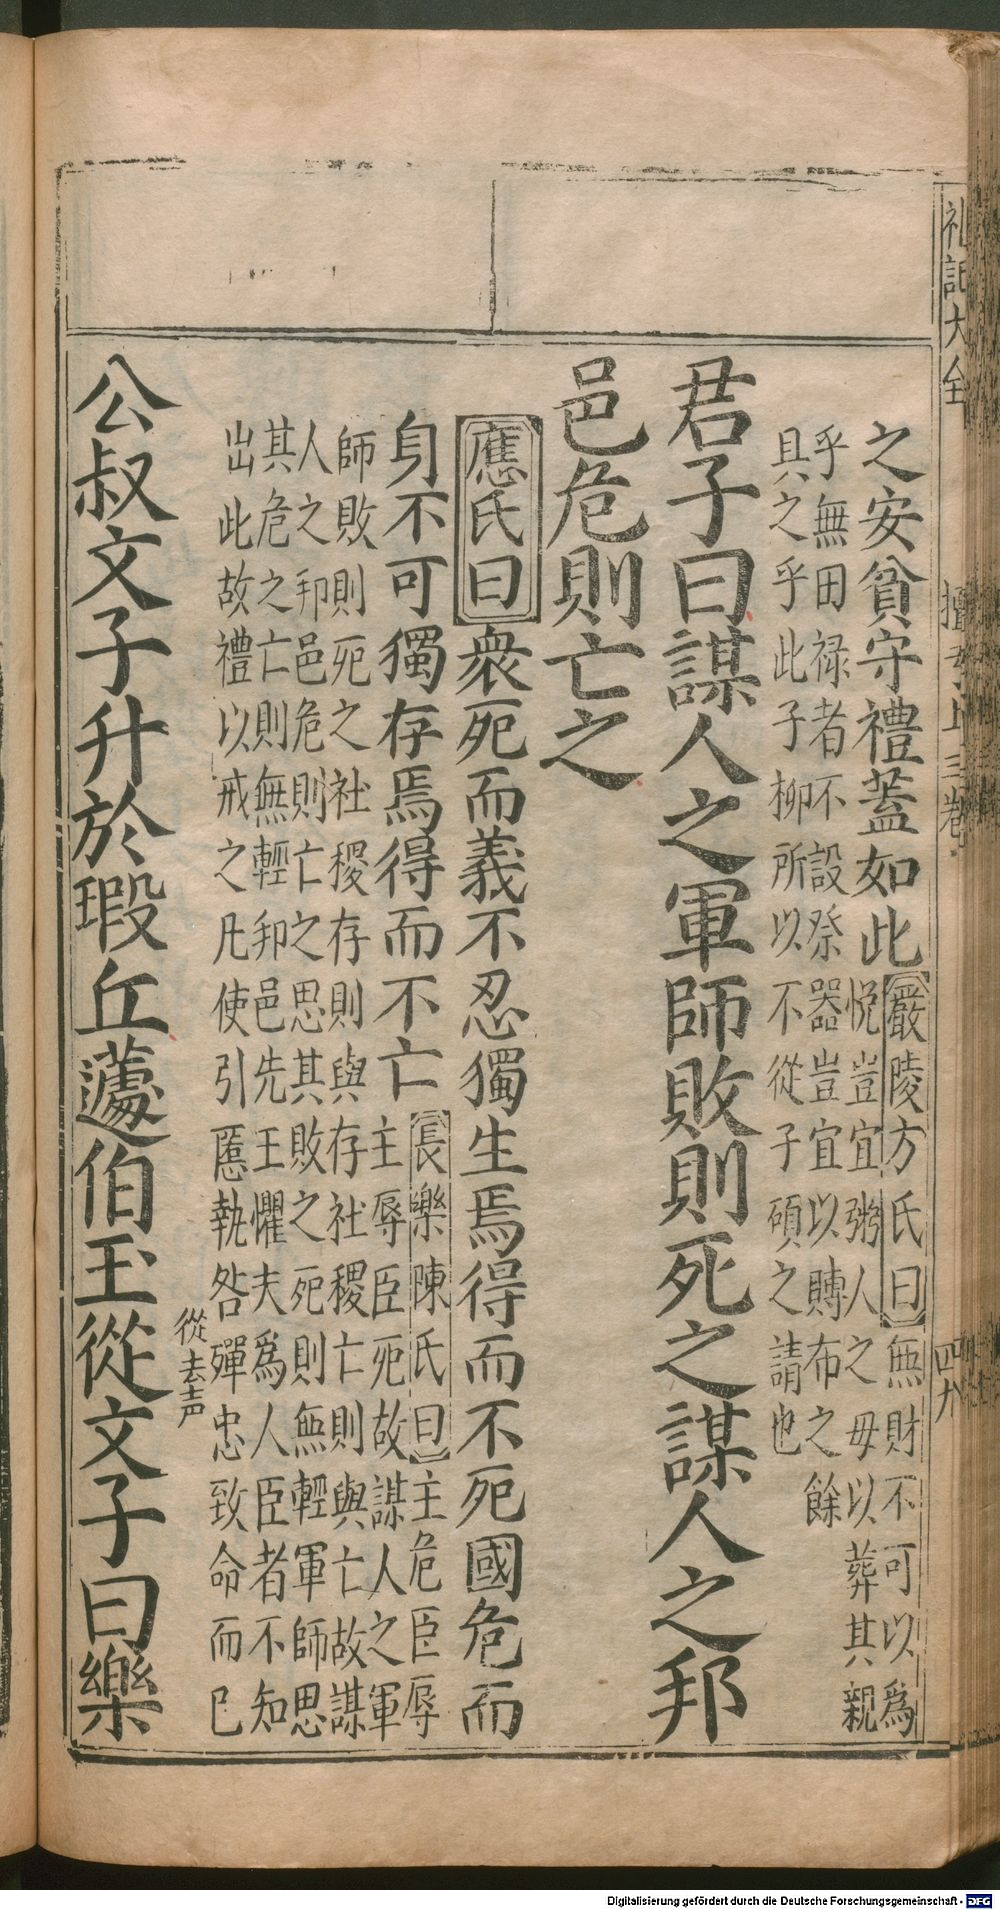 礼記大全
三卷
之安貧守禮蓋如此【嚴陵方氏曰】無財不可以爲
悅豈宜粥人之母以葬其親
乎無田禄者不設祭器豈宜以賻布之餘
具之乎此子柳所以不從子碩之請也
君子曰謀人之軍師敗則死之謀人之邦
邑危則亡之
應氏曰衆死而義不忍獨生焉得而不死國危而
身不可獨存焉得而不亡【長樂陳氏曰】主危臣辱
主辱臣死故謀人之軍
師敗則死之社稷存則與存社稷亡則與亡故謀
人之邦邑危則亡之思其敗之死則無輕軍師思
其危之亡則無輕邦邑先王懼夫爲人臣者不知
出此故禮以戒之凡使引慝執咎殫忠致命而已
從去声
公叔文子升於瑕丘蘧伯玉從文子曰樂
Digitalisierung gefördert durch die Deutsche Forschungsgemeinschaft - DFG